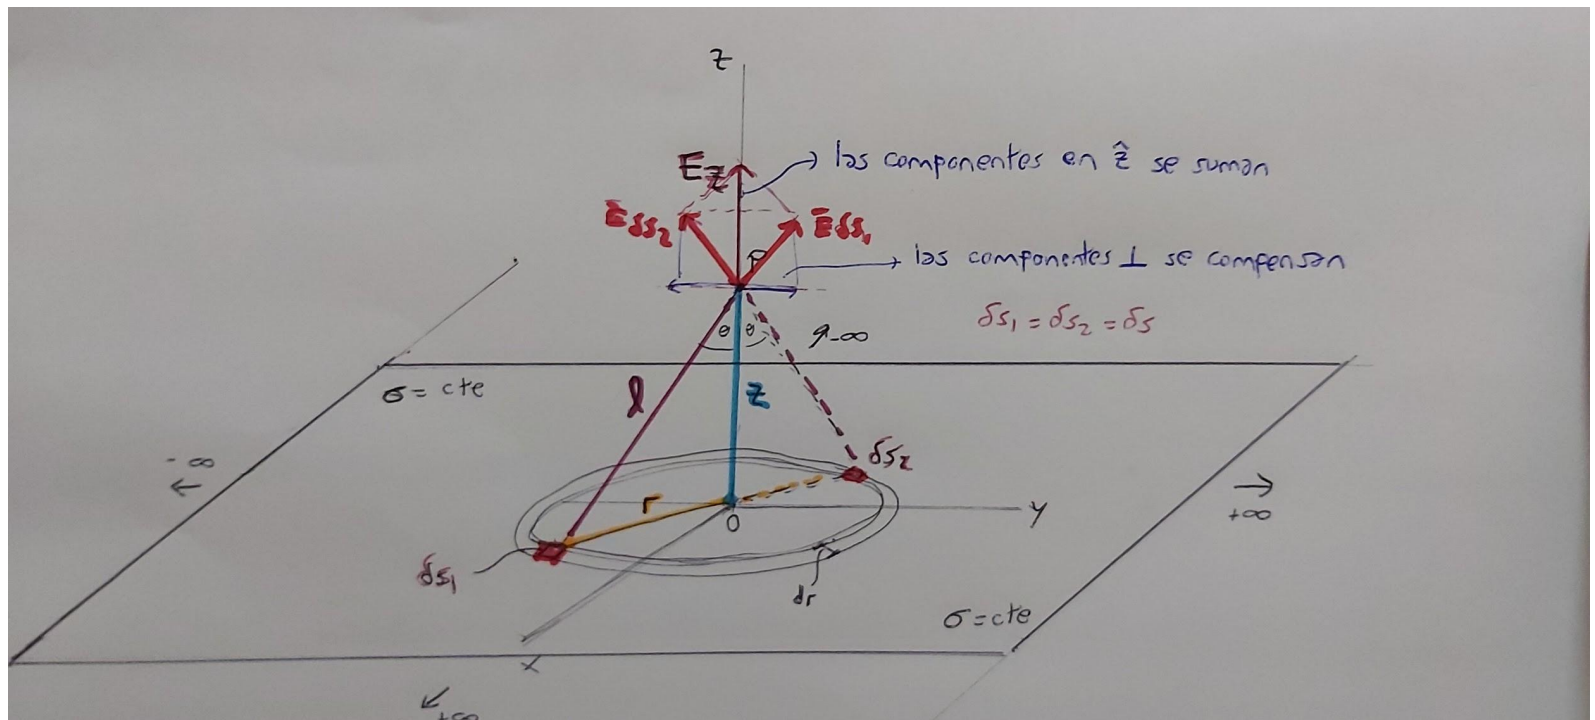 z
las componentes en ẑ se suman
Ez
Ē δs₂
Ē δs₁
las componentes ⊥ se compensan
δs₁ = δs₂ = δs
θ θ
-∞
σ = cte
l
z
δs₂
-∞
←
r
→
+∞
y
0
δs₁
dr
σ = cte
x
↙
+∞